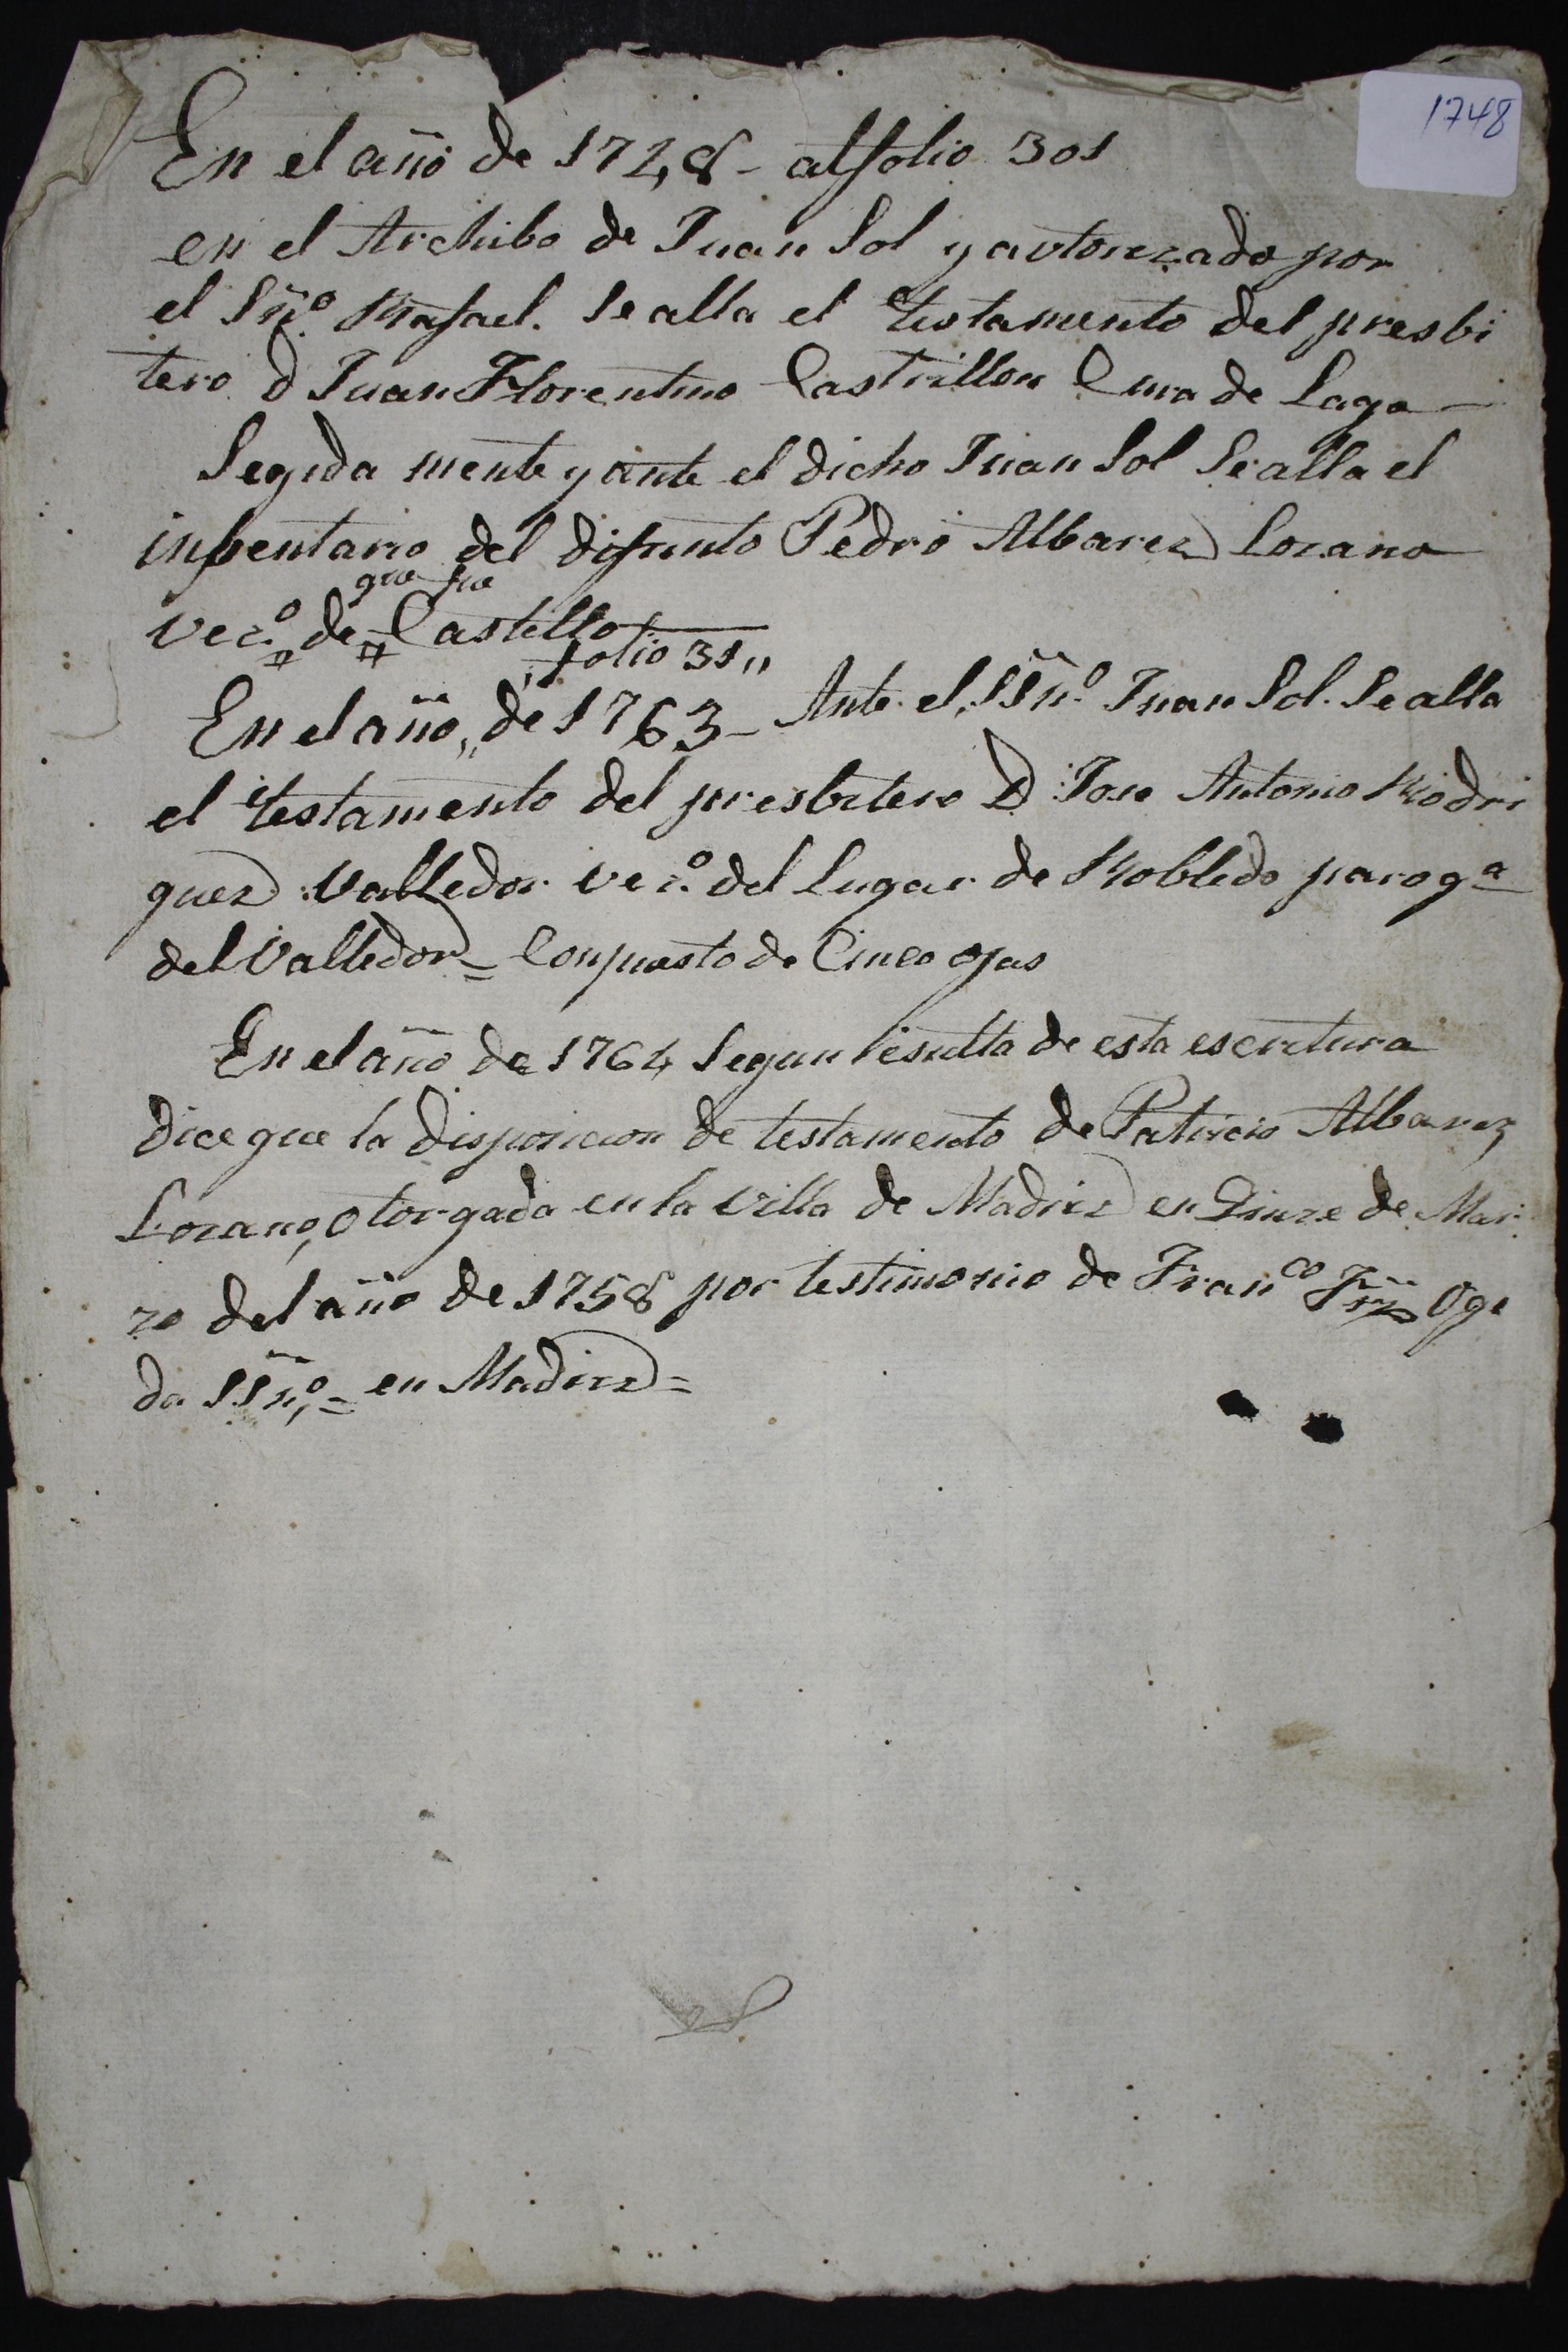 1748
En el año de 1748 - al folio 301
en el Archibo de Juan Sol y autorizado por
el Sñ.º Rafael. Se alla el testamento del presbi
tero D Juan Florentino Castrillon Cura de Lago -
Segida mente y ante el dicho Juan Sol Se alla el
inbentario del difunto Pedro Albarez Lozano
que fue
vec.º de Castello
folio 31,,
En el año,, de 1763 - Ante el SSñ.º Juan Sol. Se alla
el testamento del presbitero D Jose Antonio Rodri
guez Valledor vec.º del Lugar de Robledo parogª
del Valledor = Conpuesto de Cinco ojas
En el año de 1764 Segun resulta de esta escritura
dice que la disposicion de testamento de Patricio Albarez
Lozano, otorgada en la villa de Madriz en Qinze de Mar
zo del año de 1758 por testimonio de Franco Frñz Oge
da SSñº,= en Madriz =